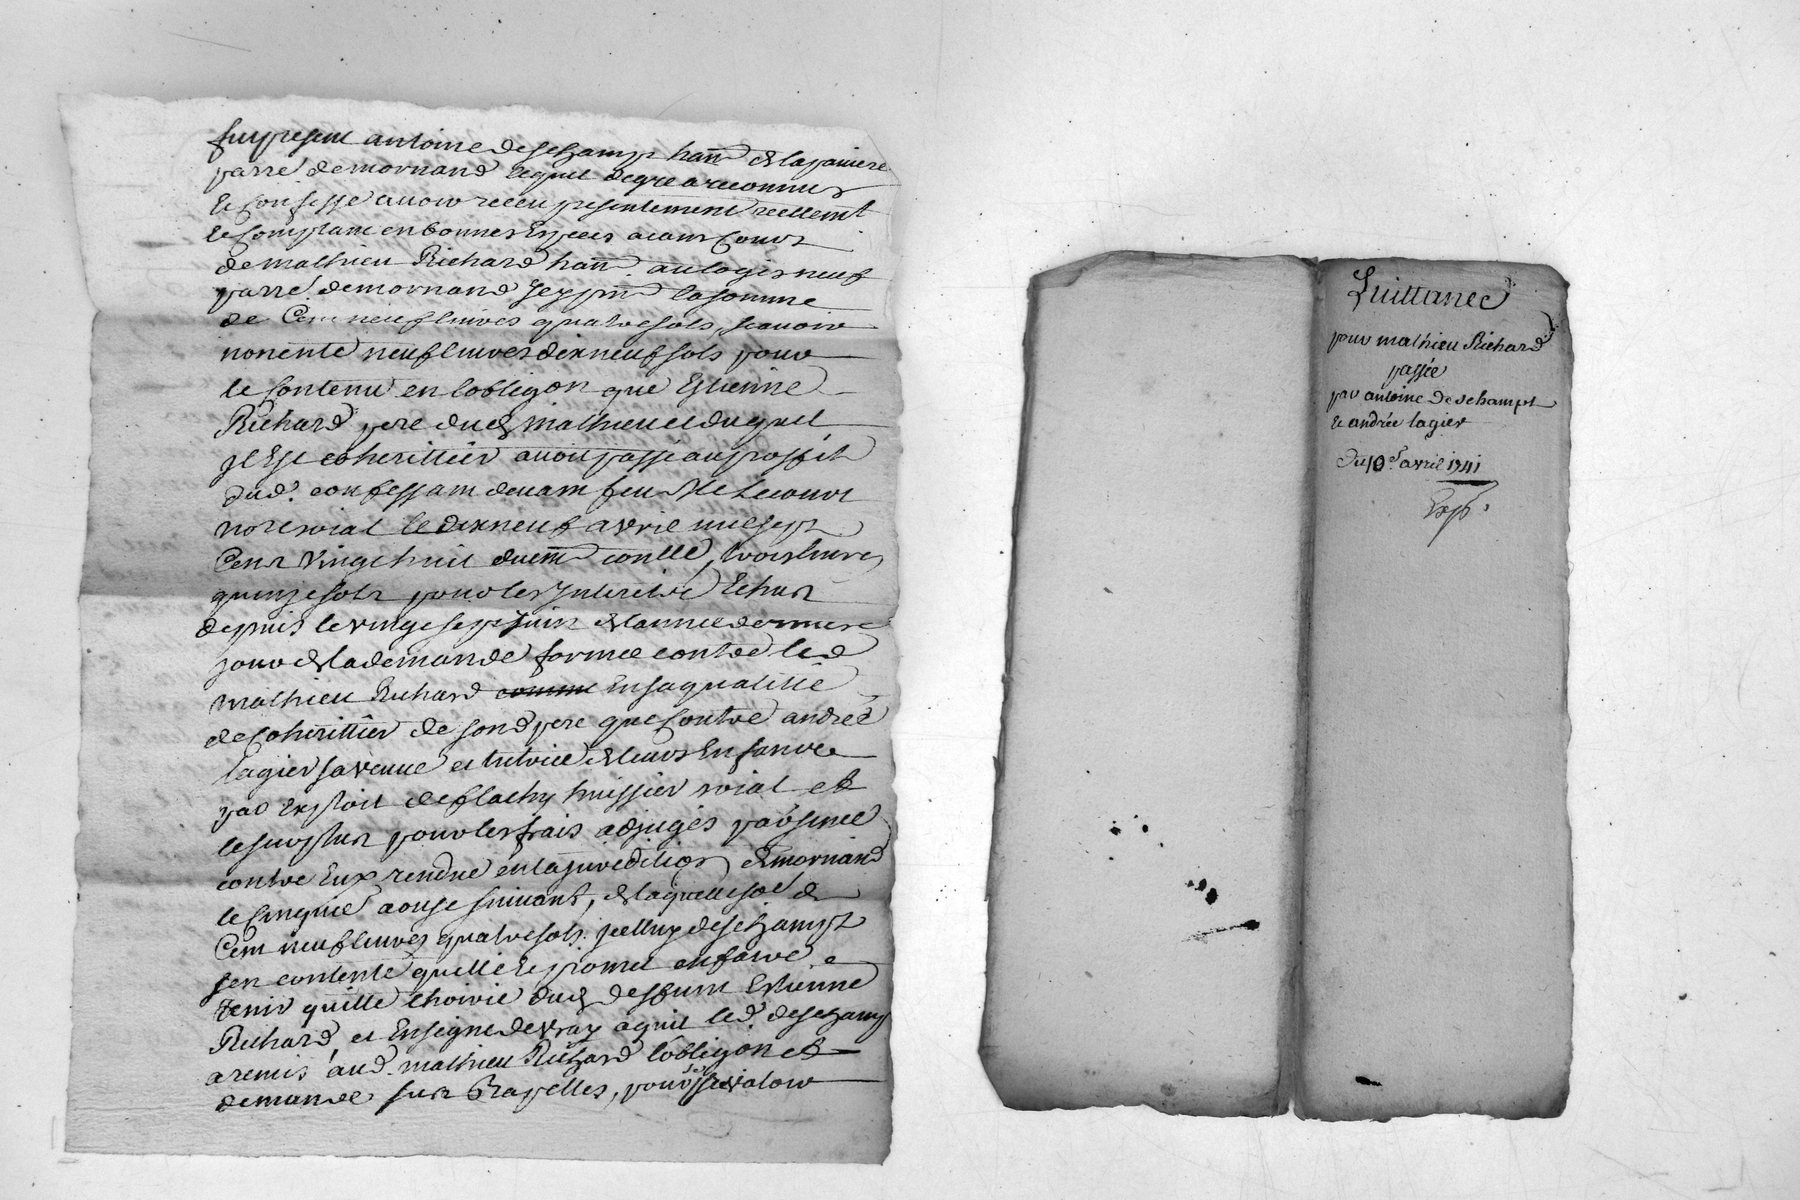 fut present antoine deschamps hant de la
parre de mornand lequel de gre a reconnu
et confesse avoir receu presentement reellemt
et comptant en bonnes especes aiant cours
de mathieu Richard hant au logis neuf
parre de mornand icy pnt la somme
de Cent neuf livres quatre sols, scavoir
nonente neuf livres dix neuf sols pour
le contenu en lobligon que Estienne
Richard pere dud mathieu et duquel
il est coherittier avoit passé au proffit
dud. confessant devant feu Me Lecourt
nore roial le dix neuf avril mil sept
Cent vingt huit duemt conllé, trois livres
quinze sols pour les Interets Echus
depuis le vingt sept Juin de lannee derniere
jour de la demande formee contre led
mathieu Richard comme En sa qualitté
de Coherittier de sond pere que contre andreé
lagier sa veuve et tutrice de leurs Enfants
par Exploit de flachy huissier roial et
le surplus pour les frais adjugés par snce
contre Eux rendue en la juredition de mornand
le cinquie aoust suivant, de laquelle soe de
Cent neuf livres quatre sols icelluy deschamps
sen contente quitte et promet en faire
tenir quitte lhoirie dud deffunt Estienne
Richard, et En signe de vray aquit led. deschamps
a remis aud. mathieu Richard lobligon et
demande sus Rapelles, pour se valoir
Quittance
pour mathieu Richard
passée
par antoine deschamps
et andrée lagier
Du 10e avril 1741
Exp.